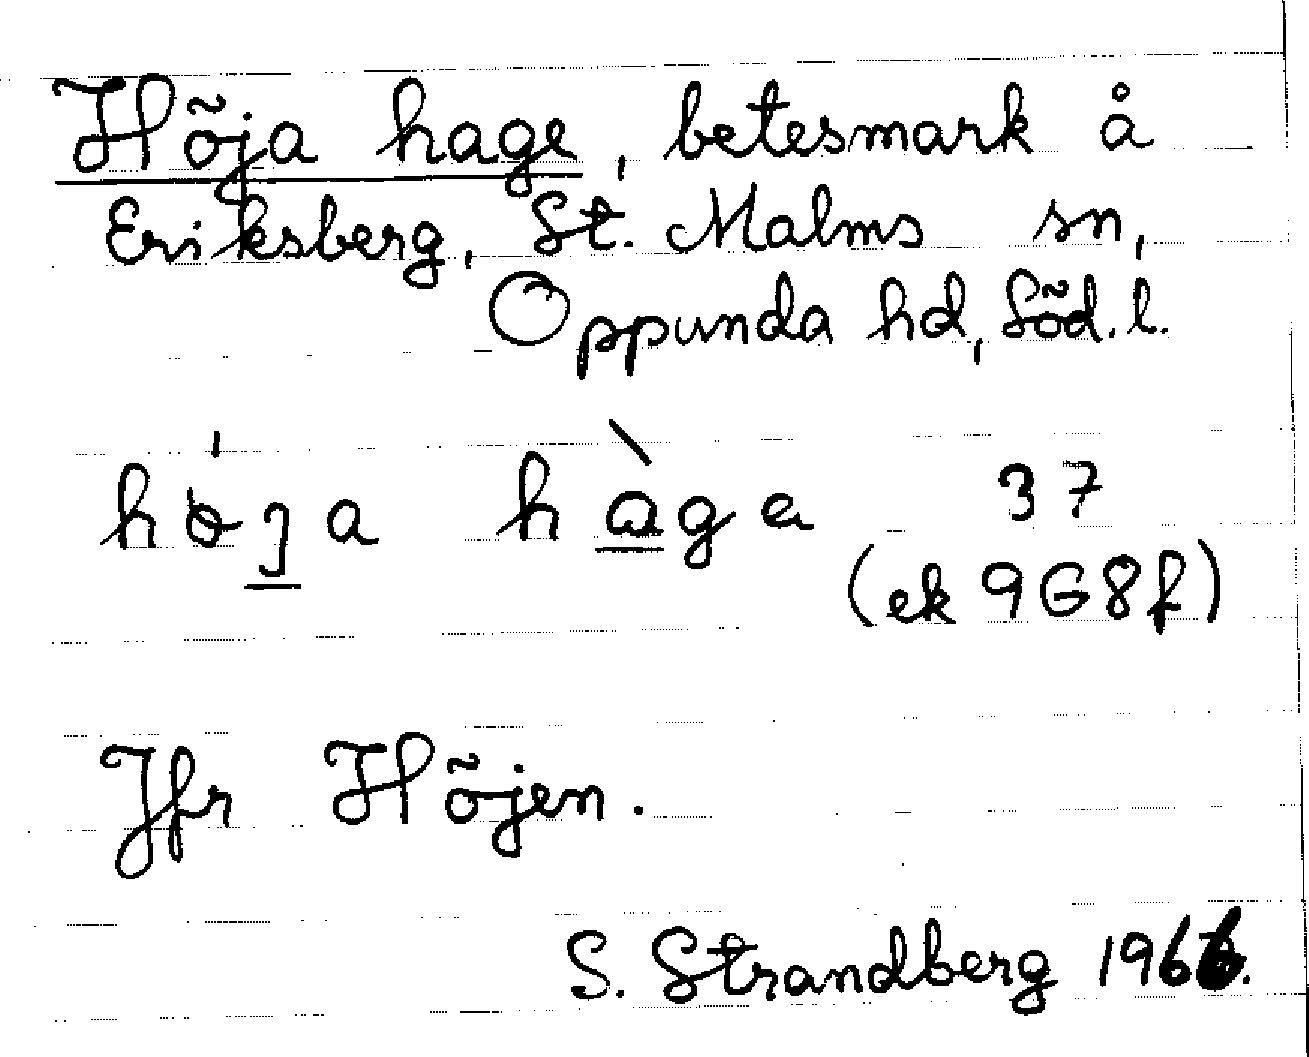 Höja hage, betesmark å
Eriksberg, St. Malms sn,
Oppunda hd, Söd. l.
hö́ja hàga 37
(ek 9G8f)
Jfr Höjen.
S. Strandberg 1966.